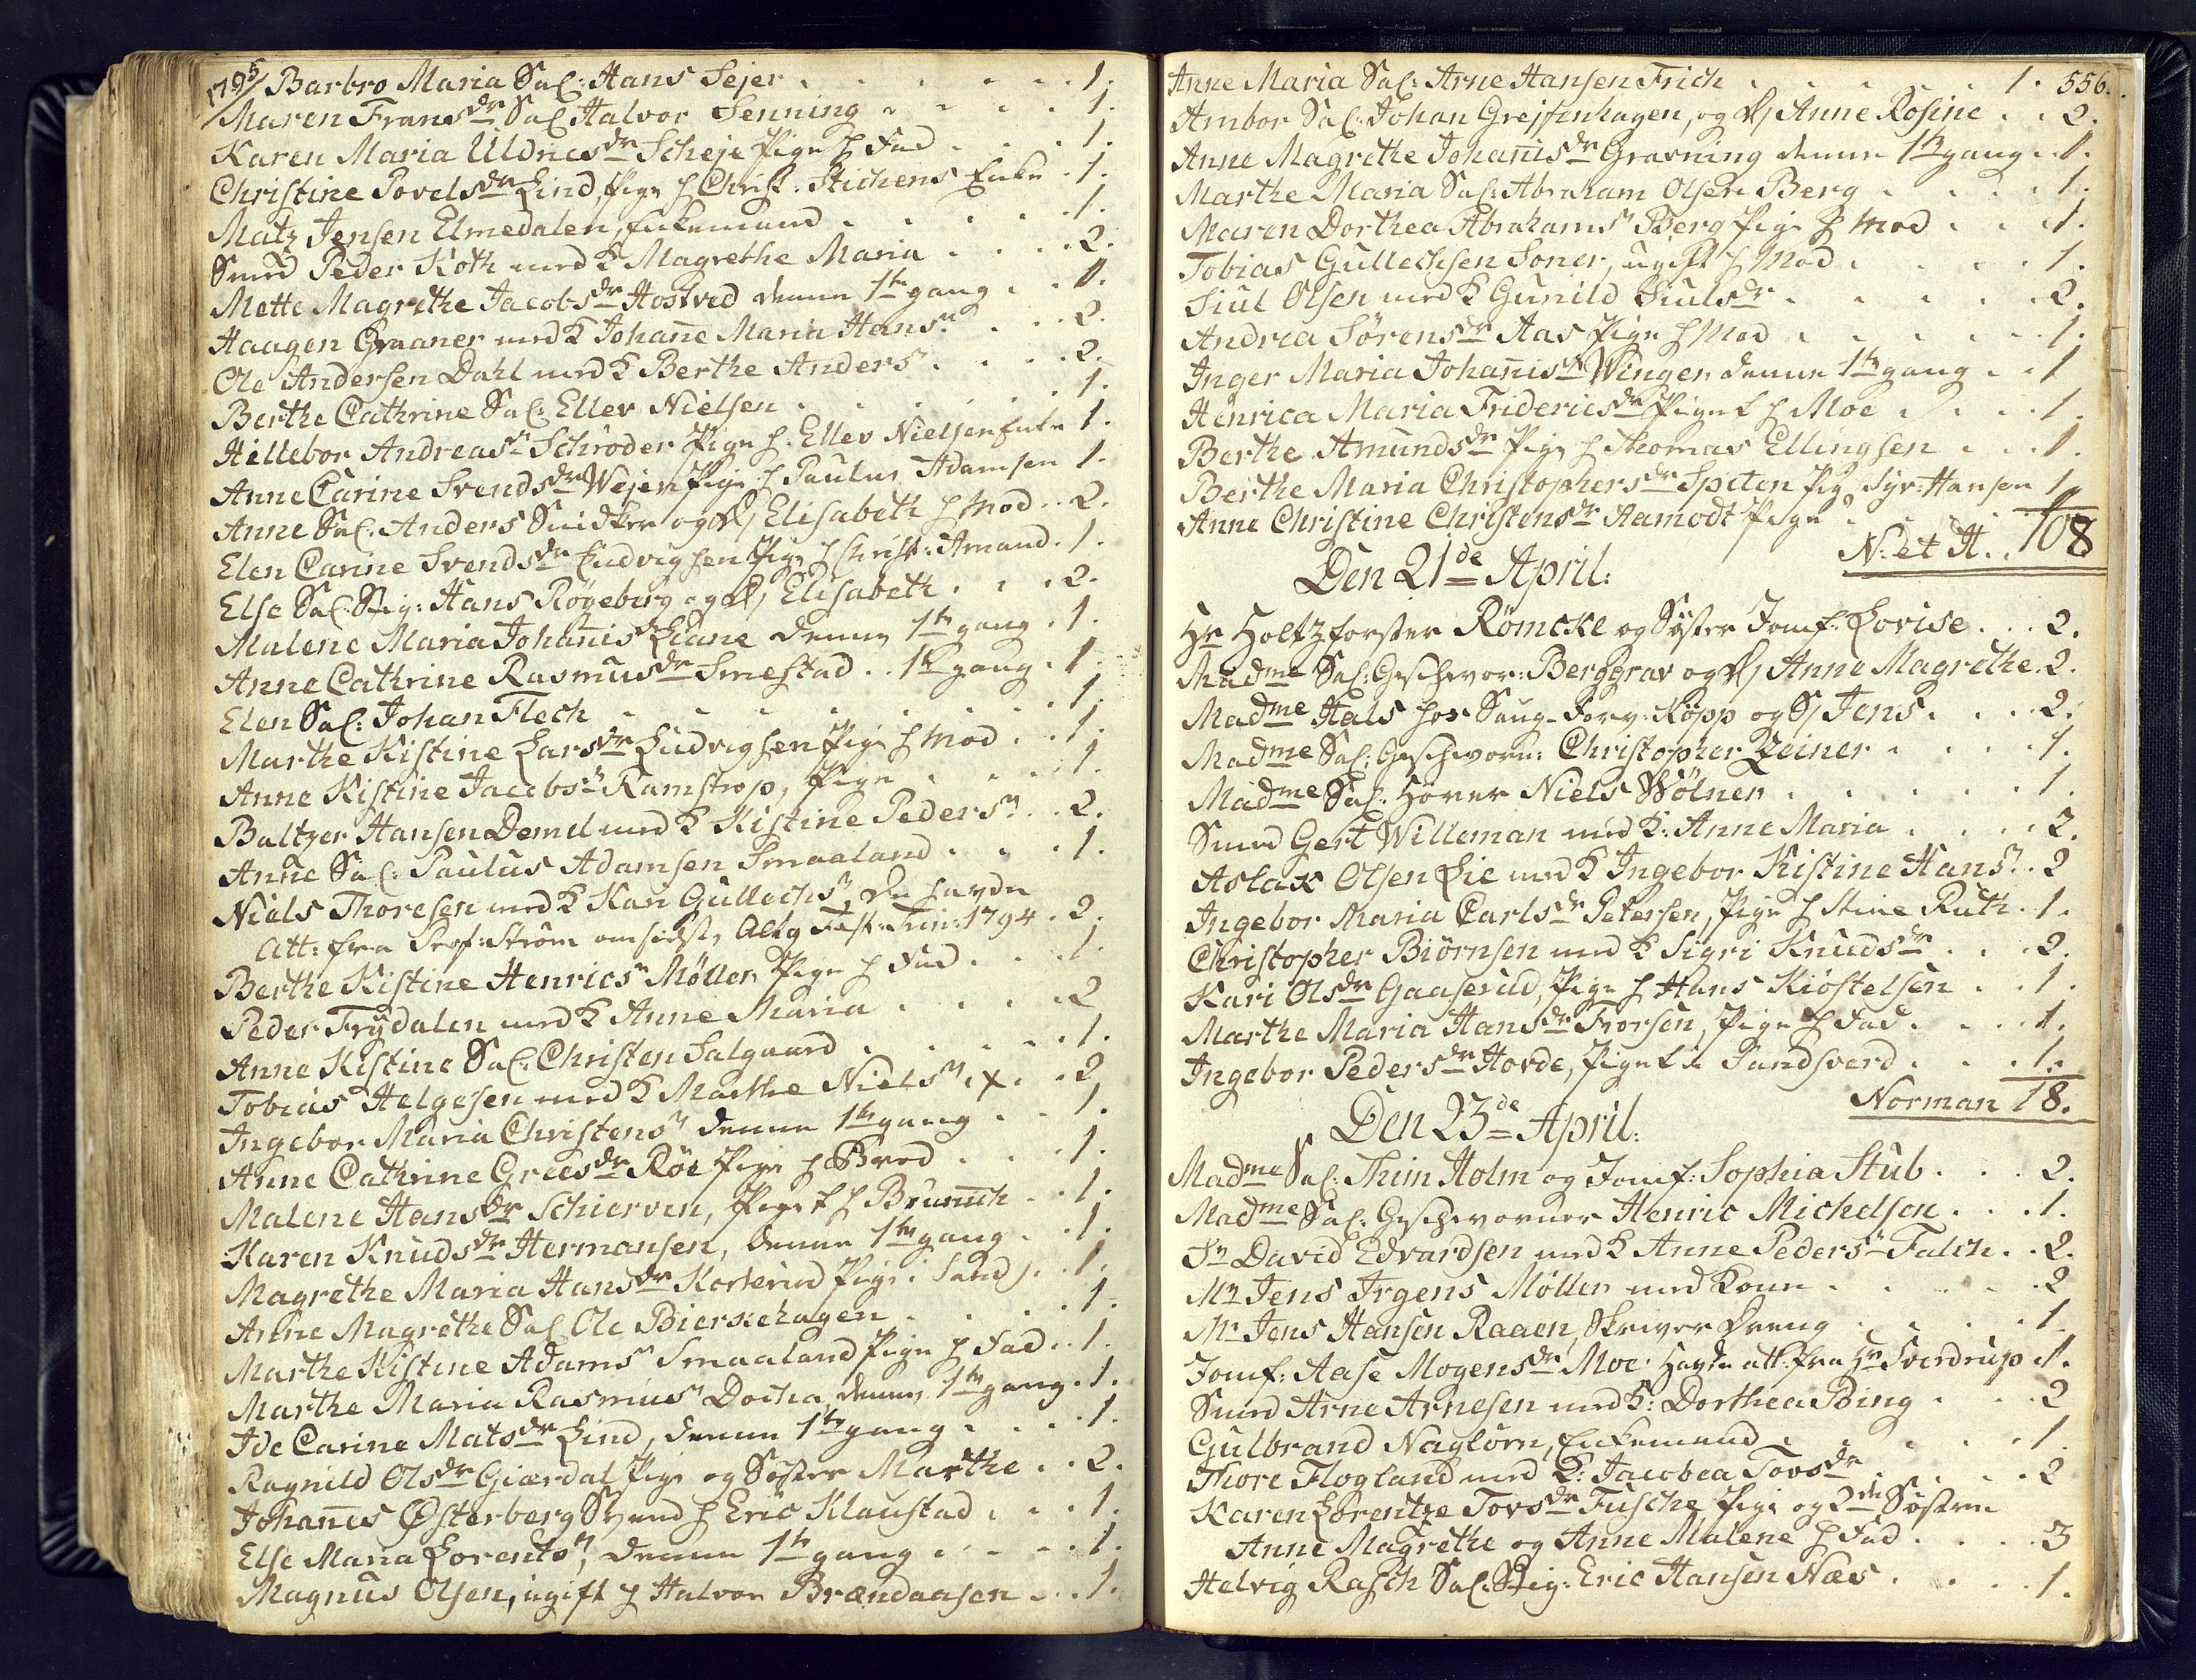 1795/ Barbro Maria Sal: Hans Sejer . . . . . . 1.
Maren Frans dr Sal Halvor Senning . . . . 1.
Karen Maria Uldrics dr Scheje Pige h Fad . . . . 1.
Christine Povels dr Lind, Pige h Christ: Stichens Enke . 1.
Matz Jensen Elmedalen, Enkemand . . . . . 1.
Smed Peder Koth med K Magrethe Maria . . . . 2.
Mette Magrethe Jacobs dr Hostved denne 1te gang . . 1.
Haagen Graaner med K Johanne Maria Hans dr . . . 2.
Ole Andersen Dahl med K Berthe Anders dr . . . . 2.
Berthe Cathrine Sal: Ellev Nielsen . . . . . . 1.
Hellebor Andreas dr Schrøder Pige h: Ellev Nielsen Enke 1.
Anne Carine Svends dr Wejer Pige h Paulus Adamsen 1.
Anne Sal: Anders Snidker og D/ Elisabeth h Mod . . 2.
Elen Carine Svends dr Ludvigsen Pige h Christ: Amand . 1.
Else Sal: Stig: Hans Røgeberg og D/ Elisabeth . . . 2.
Malene Maria Johannis dr Liane denne 1te gang . 1.
Anne Cathrine Rasmus dr Smestad . . 1te gang . 1.
Elen Sal: Johan Flech . . . . . . . . 1.
Marthe Kistine Lars dr Ludvigsen Pige h Mod . . . 1.
Anne Kistine Jacobs dr Ramstrop, Pige . . . . 1.
Baltzer Hansen Demel med K Kistine Peders dr . . 2.
Anne Sal: Paulus Adamsen Smaaland . . . . 1.
Niels Thoresen med K Kari Gullechs dr, de havde
Att: fra Prof: Strøm om sidste Altg Fest: Trin: 1794 . 2.
Berthe Kistine Henrics dr Møller Pige h Fad . . . 1.
Peder Frydalen med K Anne Maria . . . . . 2
Anne Kistine Sal: Christen Salgaard . . . . . 1.
Tobias Helgesen med K Marthe Niels dr . x . . 2,
Ingebor Maria Christens dr denne 1te gang . . . 1.
Anne Cathrine Grees dr Røe Pige h Brod . . . . 1.
Malene Hans dr Schierven, Piget h Brunnich . . 1.
Karen Knuds dr Hermansen, denne 1te gang . . 1.
Magrethe Maria Hans dr Korterud Pige i Sand) . . 1.
Anne Magrethe Sal Ole Bierkehagen . . . . . 1.
Marthe Kistine Adams dr Smaaland Pige h Fad . . 1.
Marthe Maria Rasmus dr Docka denne 1te gang . 1.
Ide Carine Mats dr Lind, denne 1te gang . . . . 1.
Ragnild Ols dr Giærdal Pige og Søster Marthe . . 2.
Johannes Østerberg Svend h Eric Klaustad . . . 1.
Else Maria Lorents dr, denne 1te gang . . . . 1.
Magnus Olsen, ugift h Halvor Brændaasen . . . 1.
Anne Maria Sal: Arne Hansen Frich . . . . . 1. 556.
Ambor Sal: Johan Grejfenhagen, og D/ Anne Rosine . . 2.
Anne Magrethe Johannis dr Gravning denne 1te gang . . 1.
Marthe Maria Sal: Abraham Olsen Berg . . . . 1.
Maren Dorthea Abrahams dr Berg Pige h Mod . . . 1.
Tobias Gullechsen Soner, ugift h Mod . . . . . 1.
Siul Olsen med K Gunild Siuls dr . . . . . . 2.
Andrea Sørens dr Aas Pige h Mod . . . . . . 1.
Inger Maria Johannis dr Winger denne 1te gang . . 1
Henrica Maria Friderics dr Piget h Moe . . . . 1.
Berthe Amunds dr Pige h Thomas Ellingsen . . . 1.
Berthe Maria Christophers dr Spiten Pig Syv: Hansen 1
Anne Christine Christens dr Aamodt Pige . . . . 1
N: et H. . 108
Den 21de April:
Hr Holtzforster Römcke og Søster Jomf: Lovise . . . 2.
Madme Sal: Geschwor: Berggrav og D/ Anne Magrethe . 2.
Madme Hals hos Saug-Forv: Kopp og S/ Jens . . . . 2.
Madme Sal: Geschworn: Christopher Zeiner . . . . 1.
Madme Sal: Hører Niels Wölner . . . . . . 1.
Smed Gert Willeman med K: Anne Maria . . . . 2.
Aslak Olsen Lie med K Ingebor Kistine Hans dr . . 2
Ingebor Maria Carls dr Petersen, Pige h Stine Ruth . 1.
Christopher Biørnsen med K Sigri Knuds dr . . . 2.
Kari Ols dr Gaaserud, Pige h Hans Kiøstelsen . . 1.
Marthe Maria Hans dr Frorsen, Pige h Fad . . . . 1.
Ingebor Peders dr Hovde, Piget i Sandsverd . . . 1.
Norman 18.
Den 23de April:
Madme Sal: Thim Holm og Jomf: Sophia Stub . . . 2.
Madme Sal: Geschworner Henric Michelsen . . . 1.
Sr David Edvardsen med K Anne Peders dr Falch . . 2.
Mr Jens Irgens Møller med Kone . . . . . 2
Mr Jens Hansen Raaen, Skriver Dreng . . . . 1.
Jomf: Aase Mogens dr Moe Havde att: fra Hr Sverdrup . 1.
Smed Arne Arnesen med K: Dorthea Bing . . . 2
Gulbrand Nagløren, Enkemand . . . . . . 1.
Thore Flogland med K: Jacobea Tovs dr . . . . . 2
Karen Lorentze Tovs dr Fusche Pige og 2de Søstre
Anne Magrethe og Anne Malene h Fad . . . . 3
Helvig Rasch Sal: Stig: Eric Hansen Næs . . . . 1.